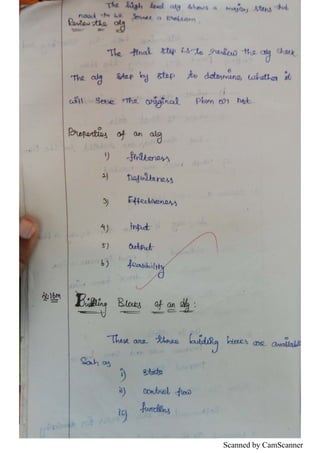 The high level alg shows a major steps that
need to be solve a problem.
Review the alg
The final step is to review the alg check
The alg step by step to determine whether it
will solve the original plbm or not.
Properties of an alg
1) finiteness
2) Definiteness
3) Effectiveness
4) input
5) output
6) feasibility
Building Blocks of an alg:
There are three building blocks are available
Such as
i) state
ii) control flow
functions
Scanned by CamScanner